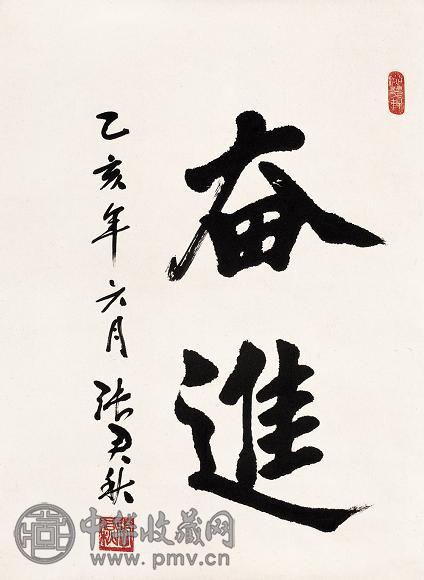 奋進
乙亥年六月 张君秋
中华收藏网
www.pmv.cn